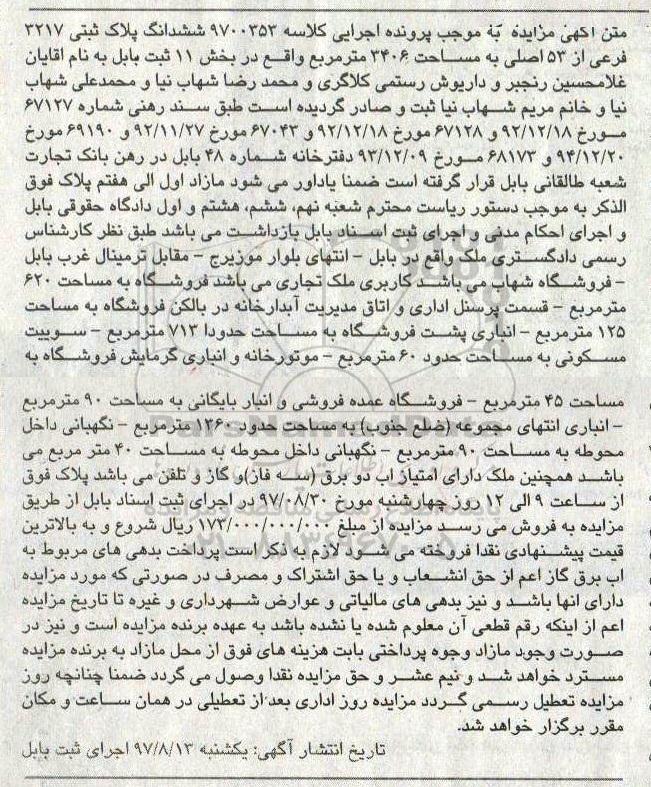 متن آگهی مزایده به موجب پرونده اجرایی کلاسه ۹۷۰۰۳۵۳ ششدانگ پلاک ثبتی ۳۲۱۷
فرعی از ۵۳ اصلی به مساحت ۳۴۰۶ مترمربع واقع در بخش ۱۱ ثبت بابل به نام آقایان
غلامحسین رنجبر و داریوش رستمی کلاگری و محمد رضا شهاب نیا و محمدعلی شهاب
نیا و خانم مریم شهاب نیا ثبت و صادر گردیده است طبق سند رهنی شماره ۶۷۱۲۷
مورخ ۹۲/۱۲/۱۸ و ۶۷۱۲۸ مورخ ۹۲/۱۲/۱۸ و ۶۷۰۴۳ مورخ ۹۲/۱۱/۲۷ و ۶۹۱۹۰ مورخ
۹۴/۱۲/۲۰ و ۶۸۱۷۳ مورخ ۹۳/۱۲/۰۹ دفترخانه شماره ۴۸ بابل در رهن بانک تجارت
شعبه طالقانی بابل قرار گرفته است ضمنا یادآور می شود مازاد اول الی هفتم پلاک فوق
الذکر به موجب دستور ریاست محترم شعبه نهم، ششم، هشتم و اول دادگاه حقوقی بابل
و اجرای احکام مدنی و اجرای ثبت اسناد بابل بازداشت می باشد طبق نظر کارشناس
رسمی دادگستری ملک واقع در بابل – انتهای بلوار موزیرج – مقابل ترمینال غرب بابل
– فروشگاه شهاب می باشد کاربری ملک تجاری می باشد فروشگاه به مساحت ۶۲۰
مترمربع – قسمت پرسنل اداری و اتاق مدیریت آبدارخانه در بالکن فروشگاه به مساحت
۱۲۵ مترمربع – انباری پشت فروشگاه به مساحت حدودا ۷۱۳ مترمربع – سوییت
مسکونی به مساحت حدود ۶۰ مترمربع – موتورخانه و انباری گرمایش فروشگاه به
مساحت ۴۵ مترمربع – فروشگاه عمده فروشی و انبار بایگانی به مساحت ۹۰ مترمربع
– انباری انتهای مجموعه (ضلع جنوب) به مساحت حدود ۱۳۶۰ مترمربع – نگهبانی داخل
محوطه به مساحت ۹۰ مترمربع – نگهبانی داخل محوطه به مساحت ۴۰ متر مربع می
باشد همچنین ملک دارای امتیاز اب دو برق (سه فاز)و گاز و تلفن می باشد پلاک فوق
از ساعت ۹ الی ۱۲ روز چهارشنبه مورخ ۹۷/۰۸/۳۰ در اجرای ثبت اسناد بابل از طریق
مزایده به فروش می رسد مزایده از مبلغ ۱۷۳/۰۰۰/۰۰۰/۰۰۰ ریال شروع و به بالاترین
قیمت پیشنهادی نقدا فروخته می شود لازم به ذکر است پرداخت بدهی های مربوط به
اب برق گاز اعم از حق انشعاب و یا حق اشتراک و مصرف در صورتی که مورد مزایده
دارای انها باشد و نیز بدهی های مالیاتی و عوارض شهرداری و غیره تا تاریخ مزایده
اعم از اینکه رقم قطعی آن معلوم شده یا نشده باشد به عهده برنده مزایده است و نیز در
صورت وجود مازاد وجوه پرداختی بابت هزینه های فوق از محل مازاد به برنده مزایده
مسترد خواهد شد و نیم عشر و حق مزایده نقدا وصول می گردد ضمنا چنانچه روز
مزایده تعطیل رسمی گردد مزایده روز اداری بعد از تعطیلی در همان ساعت و مکان
مقرر برگزار خواهد شد.
تاریخ انتشار آگهی: یکشنبه ۹۷/۸/۱۳ اجرای ثبت بابل